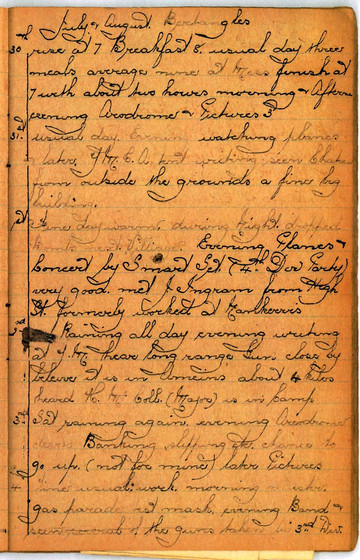 July & August. Bertangles
30th rise at 7 Breakfast 8. usual day three
meals average mine at Mess finish at
7 with about two hours morning & Aftern
evening Arodrome & Pictures 3d
31st usual day. Evening watching planes
& later, Y.M.C.A. tent writing. seen Chate
from outside the grounds a fine big
building.
1st Fine day warm, during night dropped
bombs next Village. Evening Planes &
Concert by Smart Set. (4th Div Party)
very good. met J Ingram from High
St. formerly worked at
2nd Raining all day evening writing
at Y.M. hear long range Gun close by
beleive it is in Amiens about 4 kiles
heard H. Mc Coll. (Major) is in Camp
3rd Sat raining again. evening Arodrome
clears Banking slipping &tc. chance to
go up. (not for mine) later Pictures
4 Fine usual work. morning
gas parade mask. evening Band &
seen of the guns taken by 3rd Div.